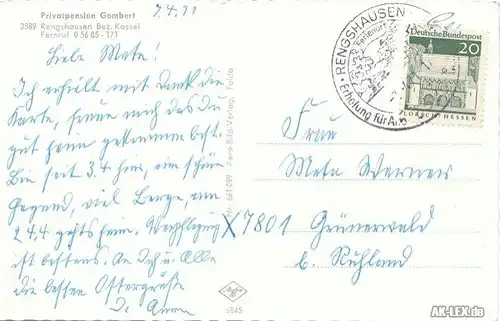 Privatpension Gombert
3589 Rengshausen Bez. Kassel
Fernruf 0 56 85 - 171
7.4.71
Liebe Meta!
Ich erhielt mit Dank die
Karte, freue mich das Du
gut heim gekommen bist.
Sind seit 3.4 hier, eine schöne
Gegend, viel Berge, am
24.4 gehts heim. Verpflegung
ist bestens. An Dich u. Alle
die besten Ostergrüße
D.
Frau
Meta Werners
X 7801 Grünewald
b. Ruhland
Nr. 661 099 Aero-Bild-Verlag, Fulda
Agfa
5845
RENGSHAUSEN
Ferienort
Erholung für
Deutsche Bundespost
20
LORSCH/HESSEN
AK-LEX.de